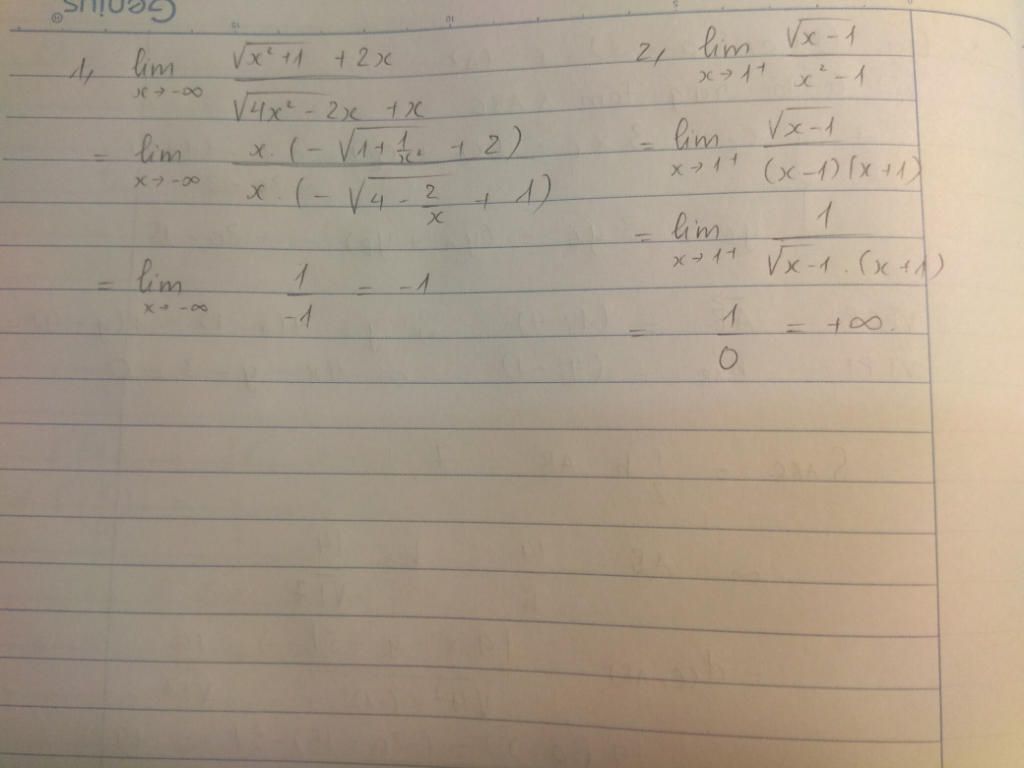 Genius®
1, lim x→-∞ (√(x²+1) + 2x) / (√(4x² - 2x) + x)
= lim x→-∞ x.(-√(1 + 1/x²) + 2) / x.(-√(4 - 2/x) + 1)
= lim x→-∞ 1/-1 = -1
2, lim x→1⁺ √(x-1) / (x² - 1)
= lim x→1⁺ √(x-1) / (x-1)(x+1)
= lim x→1⁺ 1 / √(x-1) . (x+1)
= 1/0 = +∞.